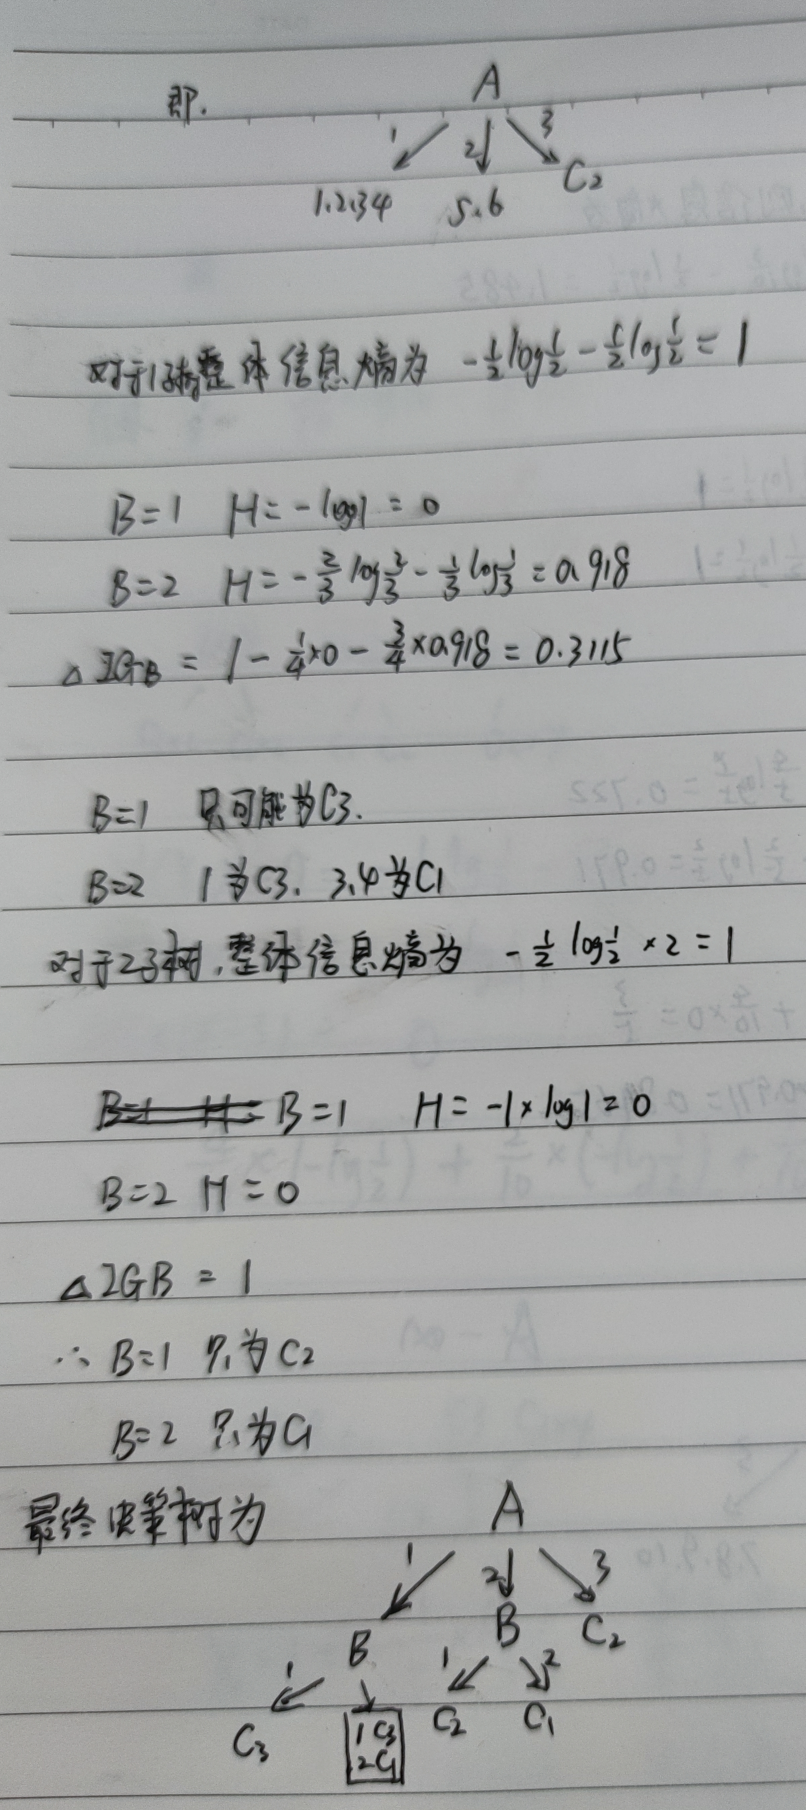 即.
A
1 2 3
1.2.34 5.6 C2
对于1子树整体信息熵为 -1/2 log 1/2 - 1/2 log 1/2 = 1
B=1 H=-log1=0
B=2 H=-2/3 log 2/3 - 1/3 log 1/3 = 0.918
△IGB = 1 - 1/4×0 - 3/4×0.918 = 0.3115
B=1 只可能为C3.
B=2 1为C3. 3.4为C1
对于2子树,整体信息熵为 -1/2 log 1/2 ×2=1
B=1 H=-1×log1=0
B=2 H=0
△IGB = 1
∴ B=1 只为C2
B=2 只为C1
最终决策树为
A
1 2 3
B B C2
1 1 2
C3 1C3 C2 C1
2C1